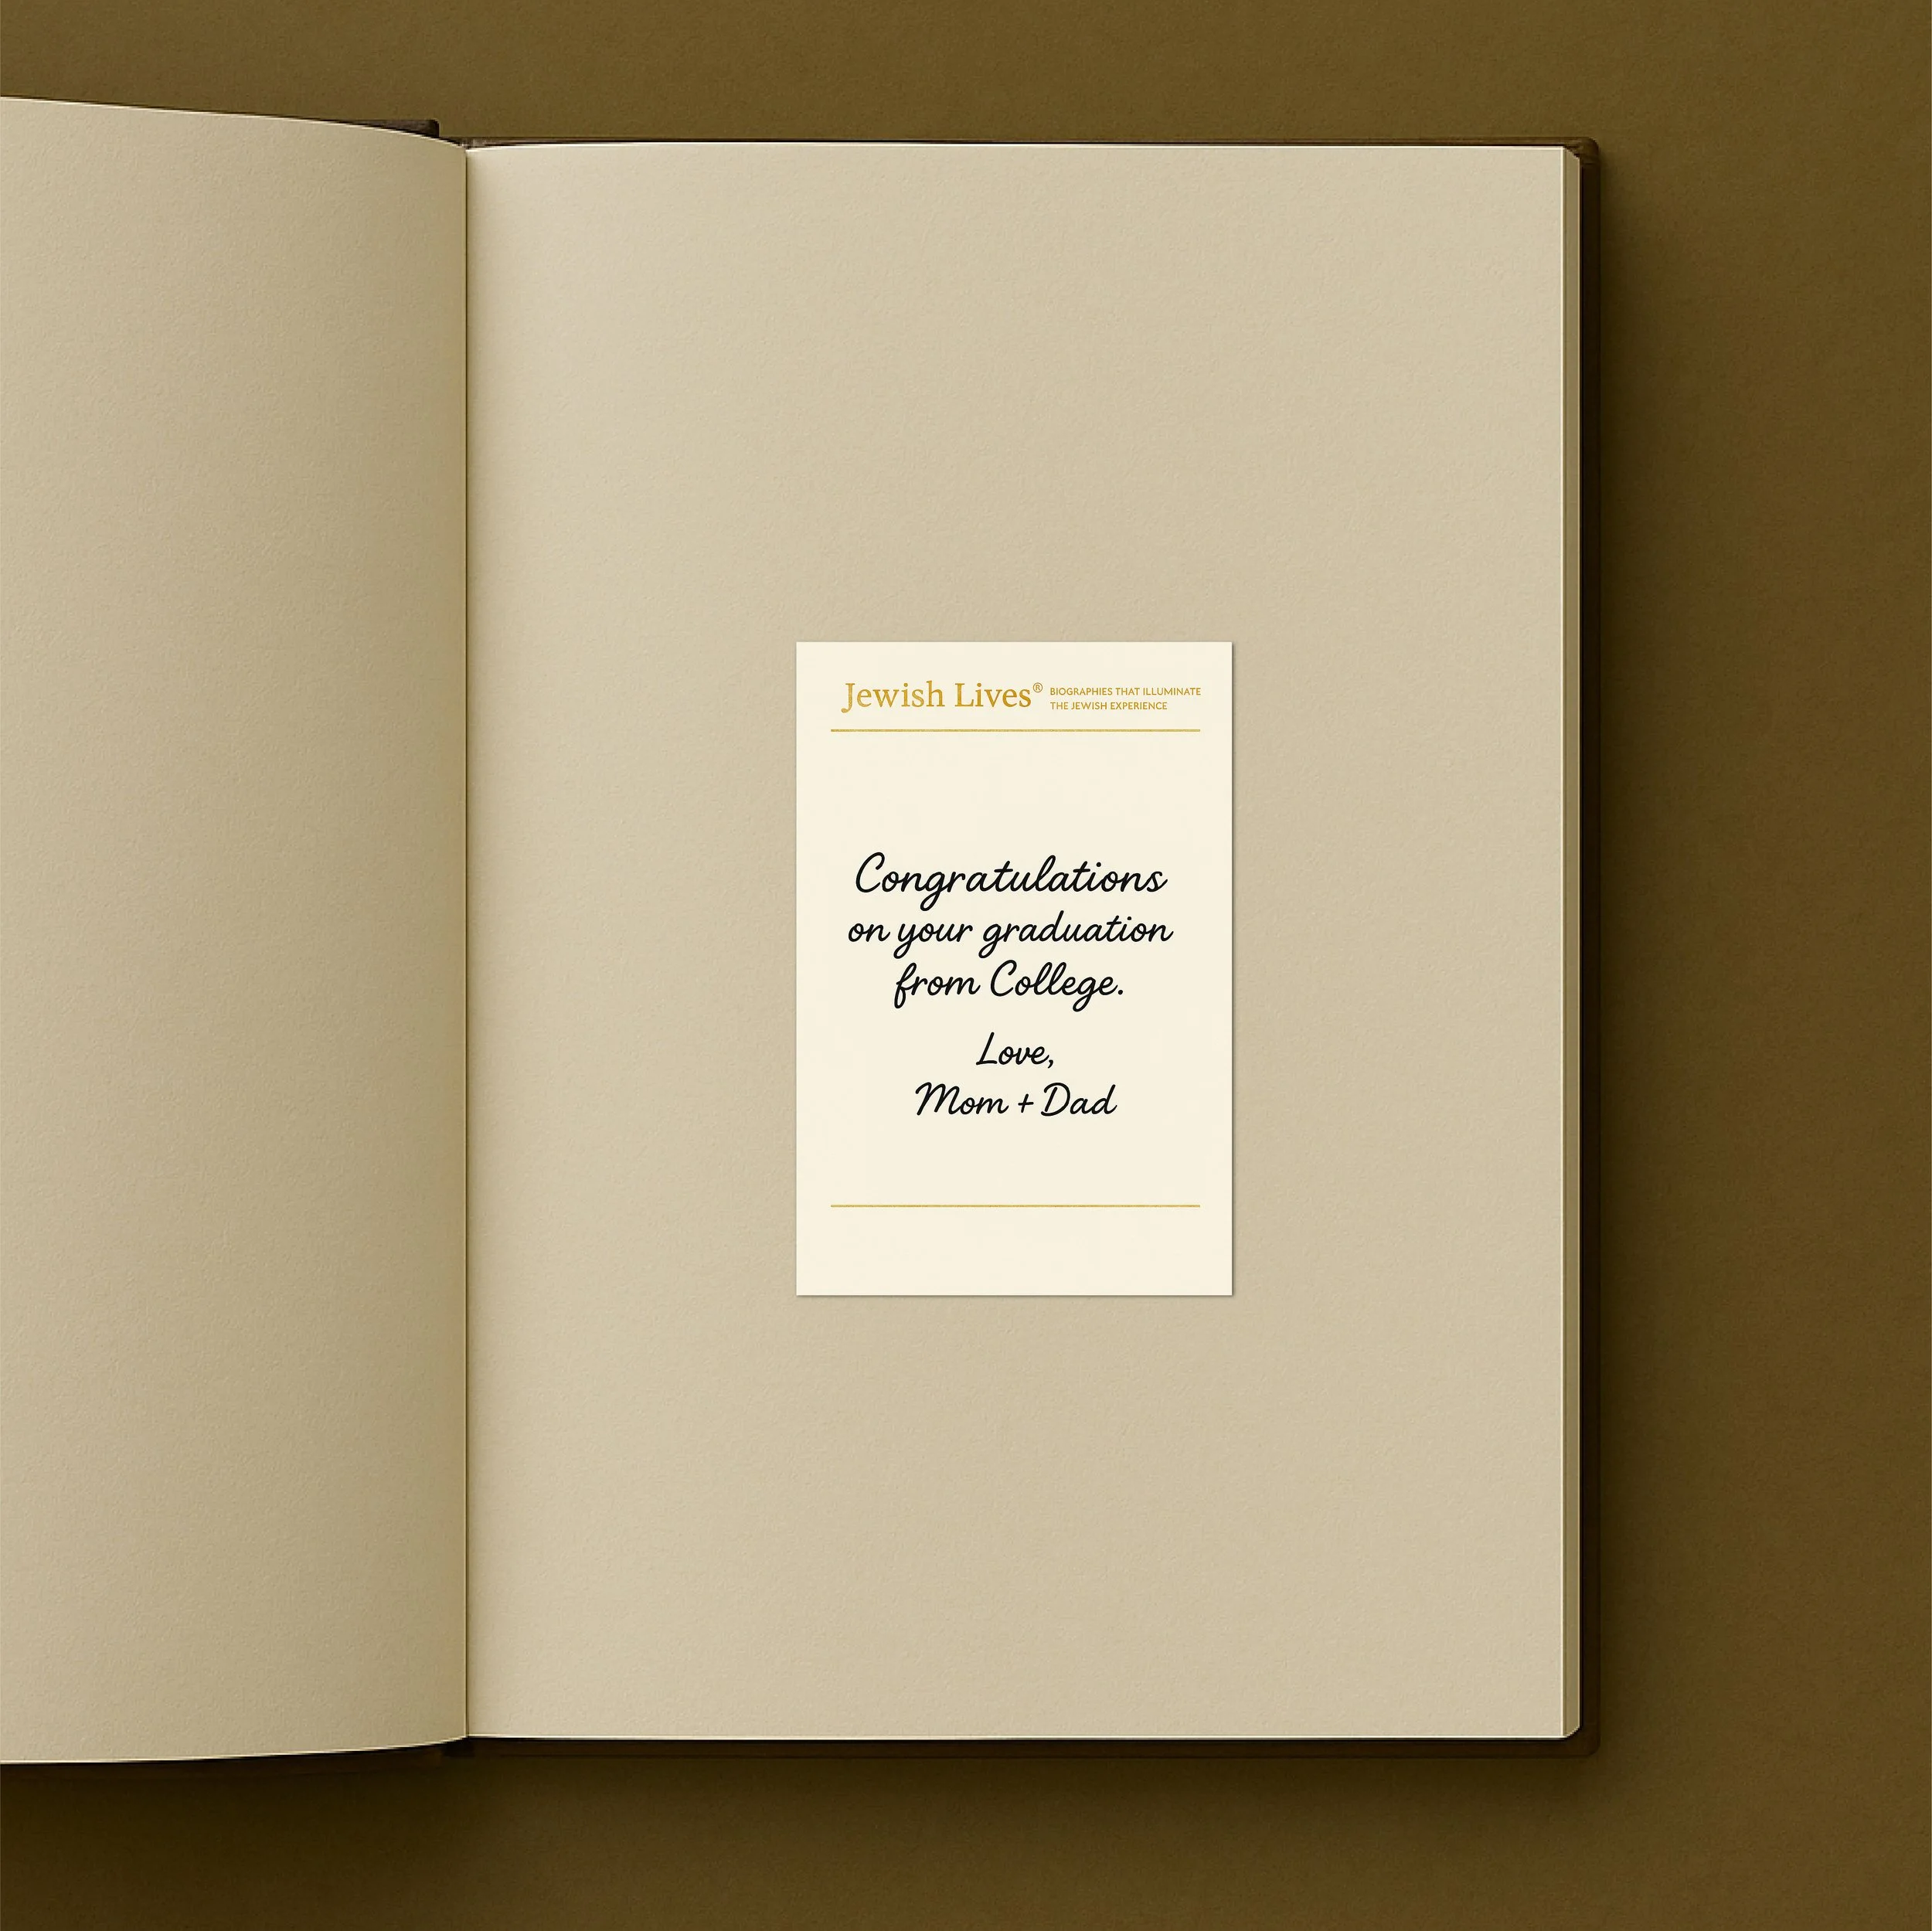 Jewish Lives® BIOGRAPHIES THAT ILLUMINATE
THE JEWISH EXPERIENCE
Congratulations
on your graduation
from College.
Love,
Mom + Dad